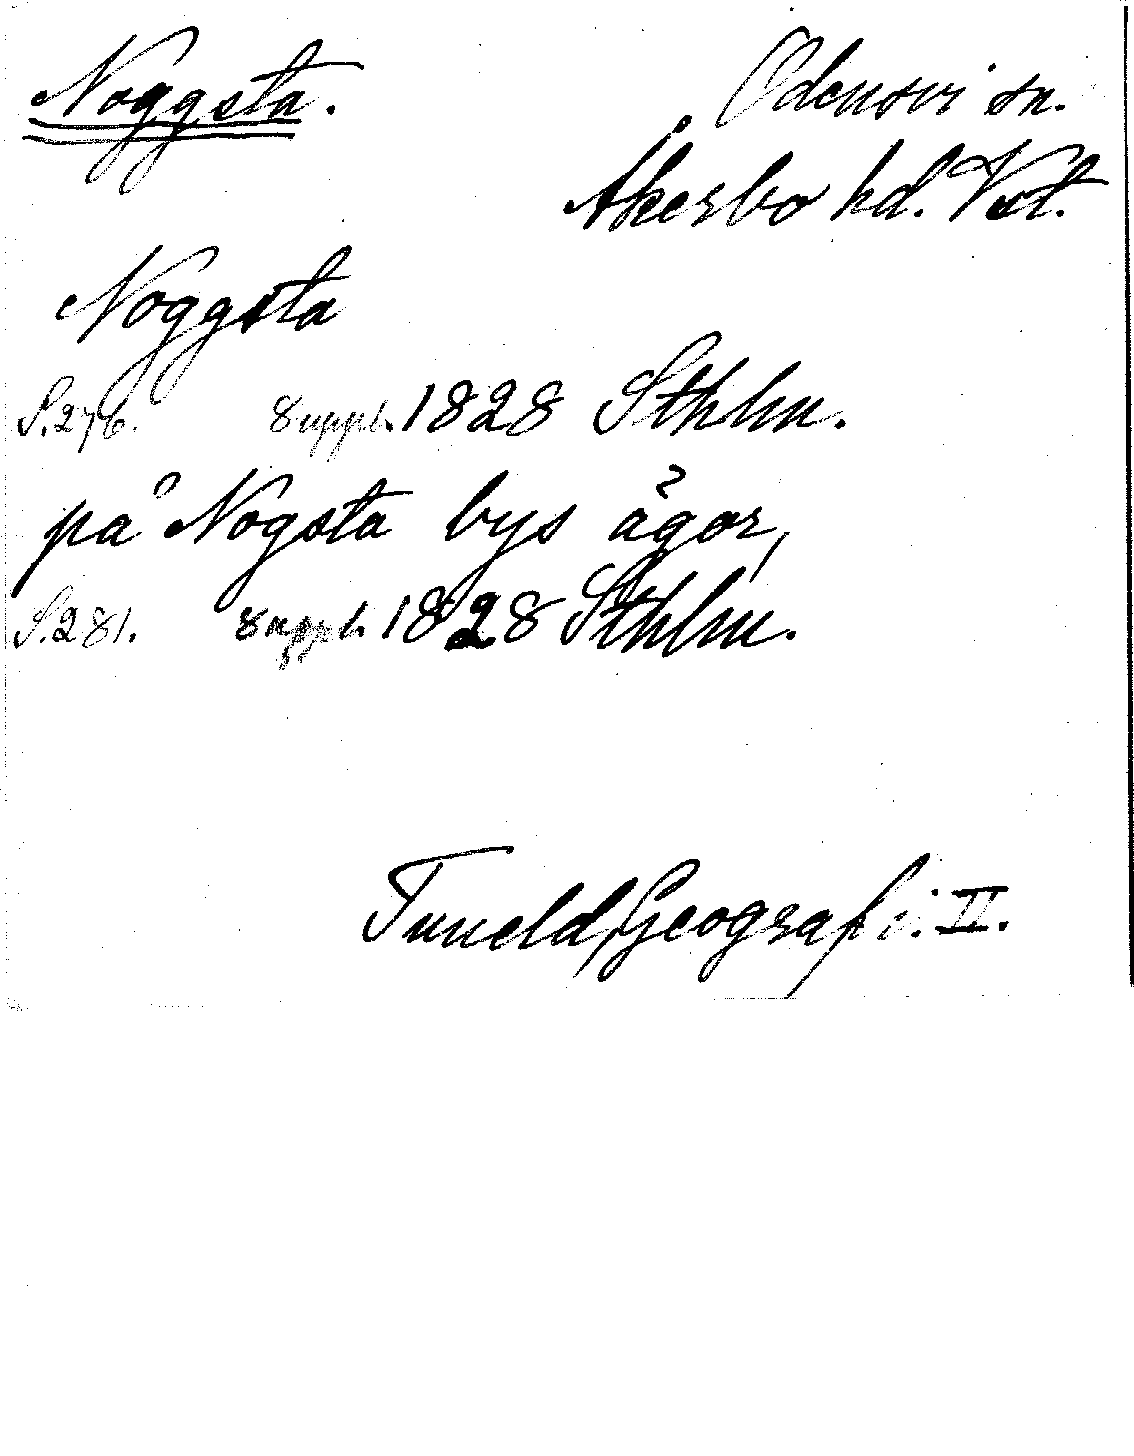 Noggsta.
Odensvi sn.
Åkerbo hd. Vstl.
Noggsta
S.276. suppl. 1828 Sthlm.
på Nogsta bys ägor,
S.281. suppl. 1828 Sthlm.
Tuneld, Geografi. II.